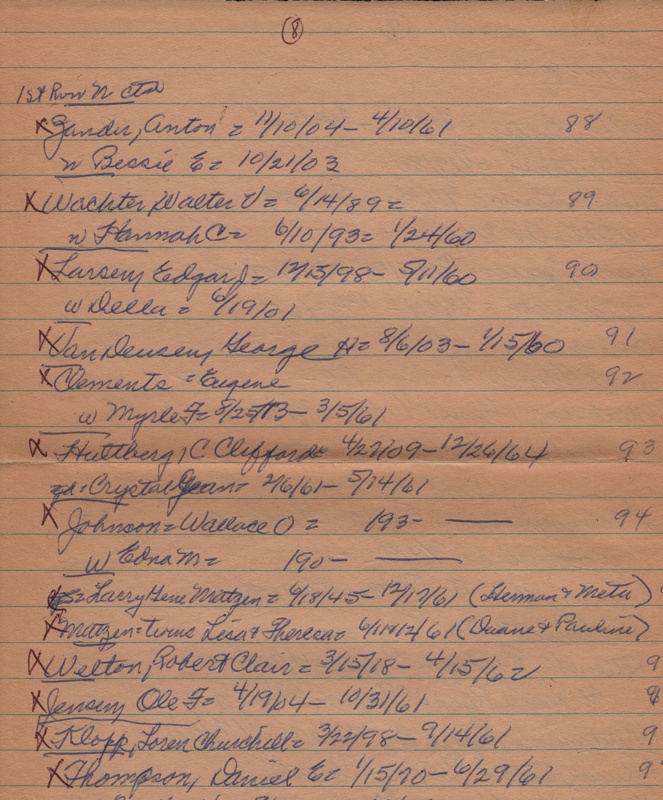 (8)
1st Row N ctd
x Zander, Anton = 11/10/04 - 4/10/61 88
w Bessie E = 10/21/03
x Wachter, Walter V = 6/14/89 = 89
w Hannah C = 6/10/93 = 1/24/60
x Larsen, Edgar J = 12/15/98 - 5/11/60 90
w Della = 6/19/01
x Van Deusen, George H = 8/6/03 - 1/15/60 91
x Clements = Eugene 92
w Myrle F = 8/25/13 - 3/5/61
x Hultberg, C. Clifford = 4/27/09 - 12/26/64 93
gd = Crystal Jean = 2/6/61 - 5/14/61
x Johnson = Wallace O = 193- — 94
w Edna M = 190- —
Larry Gene Matzen = 9/18/45 - 12/12/61 (Herman & Meta)
x Matzen = twins Lisa & Theresa = /61 (Duane & Pauline)
x Welton, Robert Clair = 3/15/18 - 4/15/62 9
x Jensen, Ole F = 4/19/04 - 10/31/61
x Klopp, Loren Churchell = 3/22/98 - 9/14/61 9
x Thompson, Daniel E = 1/15/70 - 6/29/61 9